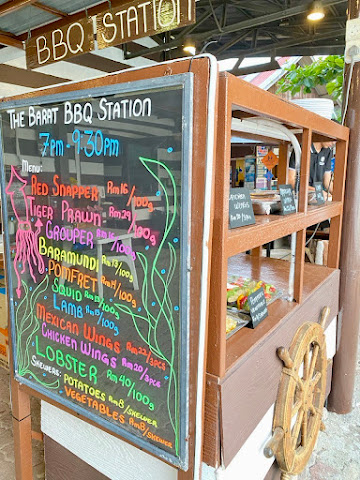 BBQ STATION
THE BARAT BBQ STATION
7PM - 9:30PM
MENU:
RED SNAPPER RM16/100g
TIGER PRAWN RM29/100g
GROUPER RM16/100g
BARAMUNDI RM13/100g
POMFRET RM14/100g
SQUID RM15/100g
LAMB RM9/100g
MEXICAN WINGS RM22/3PCS
CHICKEN WINGS RM20/3PCS
LOBSTER RM40/100g
SKEWERS: POTATOES RM8/SKEWER
VEGETABLES RM8/SKEWER
CHICKEN WINGS